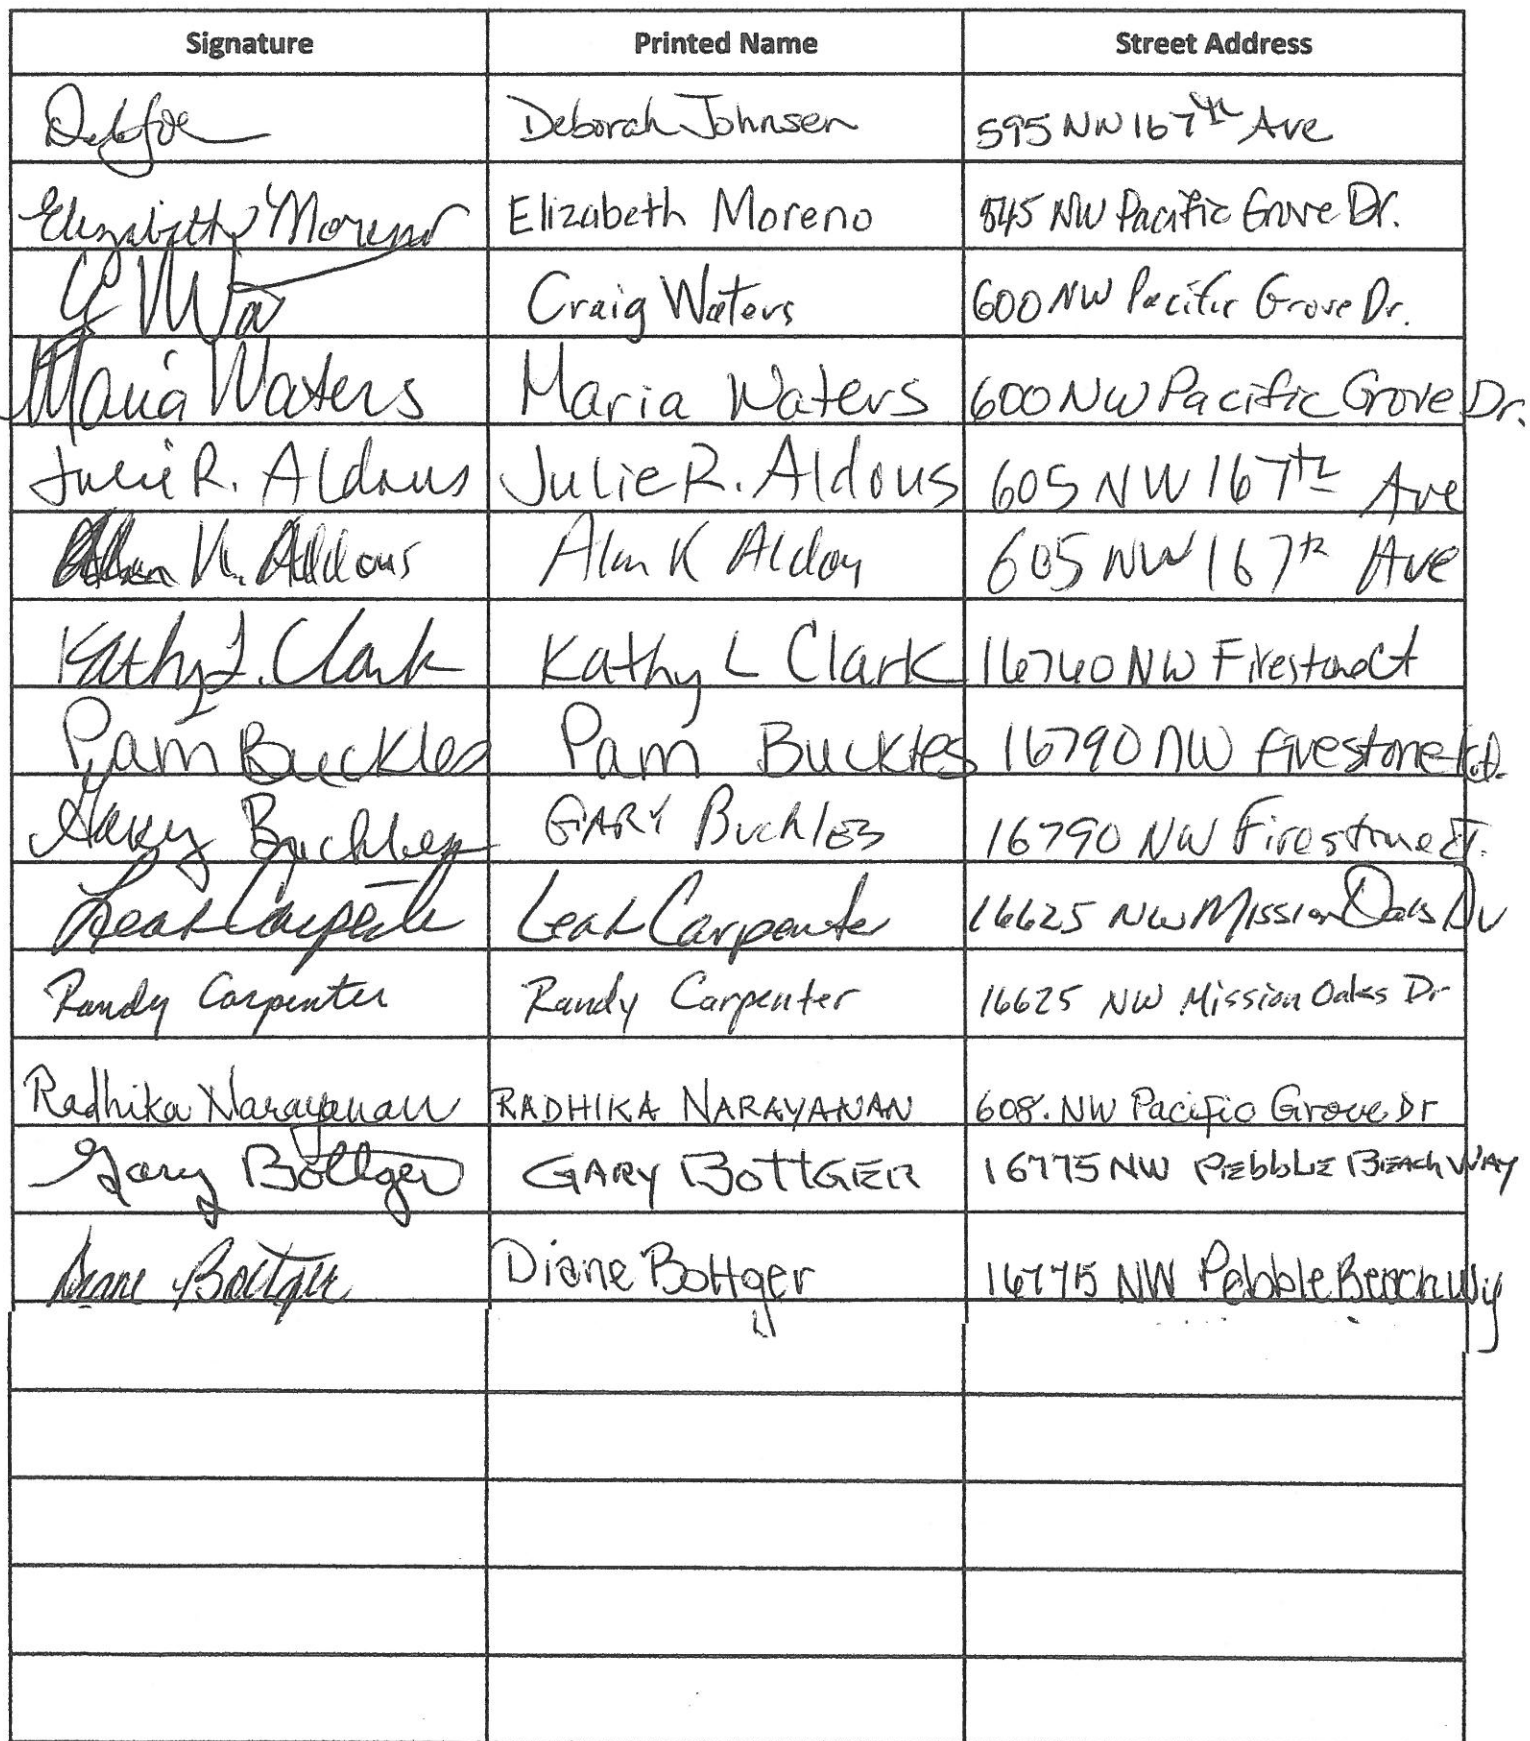 Signature Printed Name Street Address
Deborah Johnsen 595 NW 167th Ave
Elizabeth Moreno Elizabeth Moreno 545 NW Pacific Grove Dr.
Craig Waters 600 NW Pacific Grove Dr.
Maria Waters Maria Waters 600 NW Pacific Grove Dr.
Julie R. Aldous Julie R. Aldous 605 NW 167th Ave
Alan K. Aldous Alan K Aldous 605 NW 167th Ave
Kathy L. Clark Kathy L Clark 16760 NW Firestone Ct
Pam Buckles Pam Buckles 16790 NW Firestone Ct.
Gary Buckles GARY Buckles 16790 NW Firestone CT.
Leah Carpenter Leah Carpenter 16625 NW Mission Oaks Dr
Randy Carpenter Randy Carpenter 16625 NW Mission Oaks Dr
Radhika Narayanan RADHIKA NARAYANAN 608. NW Pacific Grove Dr
Gary Bottger GARY BOTTGER 16775 NW PEBBLE BEACH WAY
Diane Bottger Diane Bottger 16775 NW Pebble Beach Wy